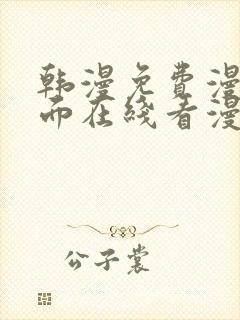 韩漫免费漫
而在线看漫
公子裳